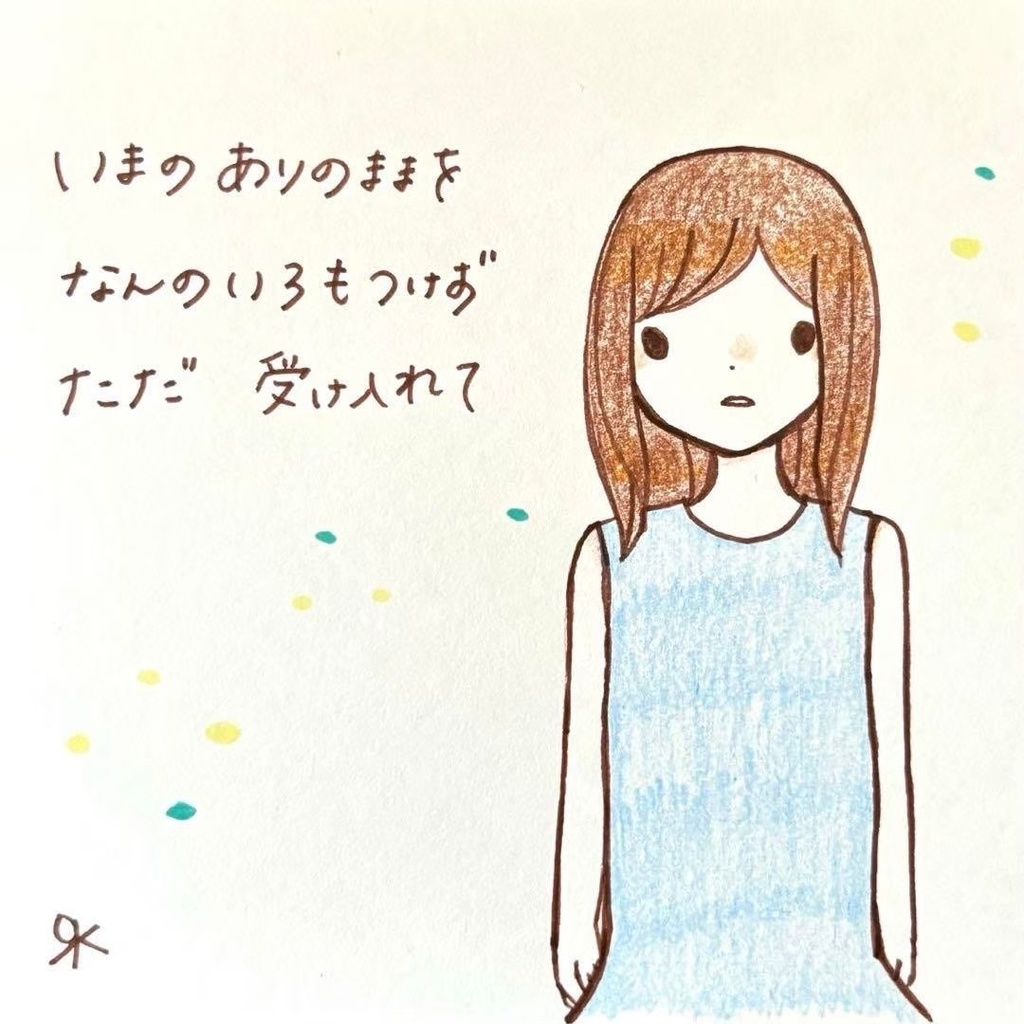 いまの ありのままを
なんのいろもつけず
ただ 受け入れて